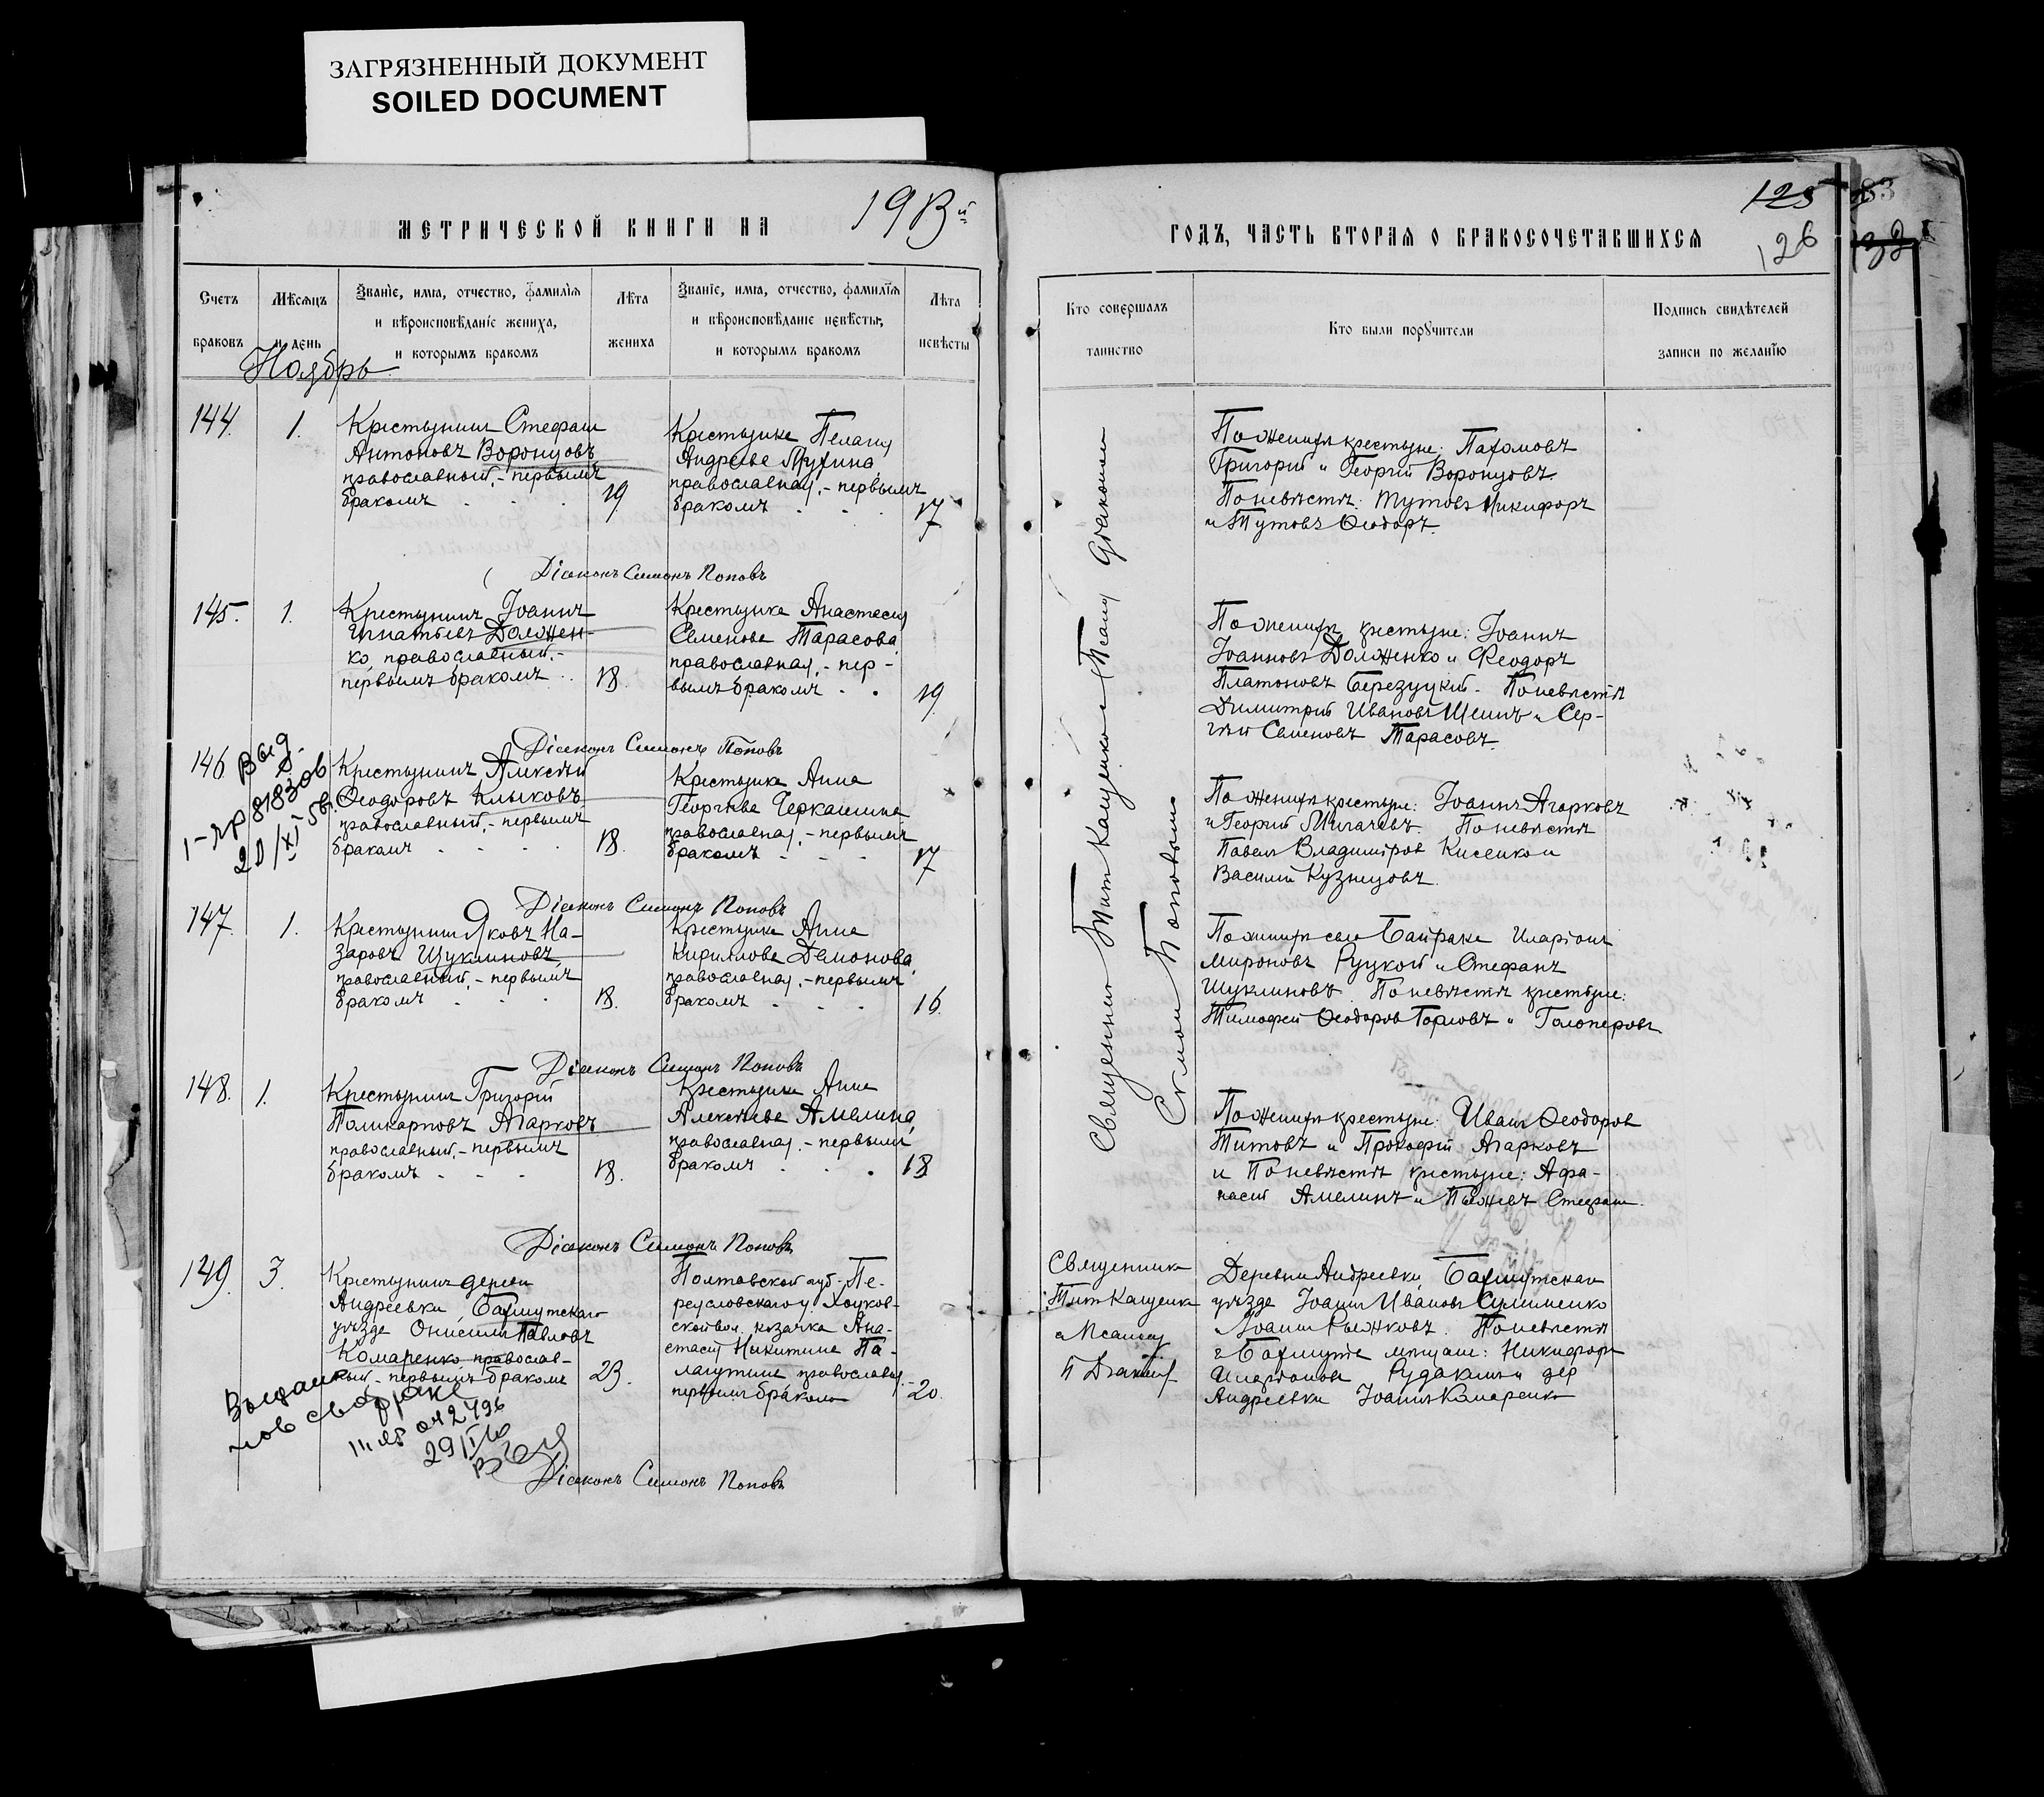 ЗАГРЯЗНЕННЫЙ ДОКУМЕНТ
SOILED DOCUMENT
МЕТРИЧЕСКОЙ КНИГИ НА 1913й
Счетъ браковъ
Мѣсяцъ и день
Званіе, имя, отчество, фамилія
и вѣроисповѣданіе жениха,
и которымъ бракомъ
Лѣта жениха
Званіе, имя, отчество, фамилія
и вѣроисповѣданіе невѣсты,
и которымъ бракомъ
Лѣта невѣсты
Ноябрь
144. 1.
Крестьянинъ Стефанъ
Антоновъ Воронцовъ
православный, - первымъ
бракомъ 19.
Крестьянка Пелагія
Андреева Мухина
православная, - первымъ
бракомъ 17
Діаконъ Симонъ Поповъ
145. 1.
Крестьянинъ Іоаннъ
Игнатьевъ Должен-
ко, православный, -
первымъ бракомъ 18.
Крестьянка Анастасія
Семенова Тарасова
православная, - пер-
вымъ бракомъ 19.
Діаконъ Симонъ Поповъ
146
Выд.
Крестьянинъ Алексѣй
Ѳеодоровъ Клыковъ
православный, - первымъ
бракомъ 18.
Крестьянка Анна
Георгіева Черкашина
православная, - первымъ
бракомъ 17
Діаконъ Симонъ Поповъ
147. 1.
Крестьянинъ Яковъ На-
заровъ Щуклиновъ
православный, - первымъ
бракомъ 18.
Крестьянка Анна
Кириллова Демонова
православная, - первымъ
бракомъ 16.
Діаконъ Симонъ Поповъ
148. 1.
Крестьянинъ Григорій
Поликарповъ Агарковъ
православный, - первымъ
бракомъ 18.
Крестьянка Анна
Алексѣева Амелина
православная, - первымъ
бракомъ 18
Діаконъ Симонъ Поповъ
149. 3.
Крестьянинъ дерев
Андреевки Бахмутскаго
уѣзда Онисимъ Павловъ
Комаренко православ-
ный - первымъ бракомъ 23.
Полтавской губ. Пе-
реяславскаго у.
вол. козачка Ана-
стасія Никитина Па-
лагутина православная
первымъ бракомъ 20.
о браке
Діаконъ Симонъ Поповъ
125
126
ГОДЪ, ЧАСТЬ ВТОРАЯ О БРАКОСОЧЕТАВШИХСЯ
Кто совершалъ
таинство
Кто были поручители
Подпись свидѣтелей
записи по желанію
Священникъ Титъ Кащенко Діакономъ
Симономъ Поповымъ
По женихѣ крестьяне: Пахомовъ
Григорій и Георгій Воронцовъ.
По невѣстѣ: Тутовъ Никифоръ
и Тутовъ Ѳеодоръ.
По женихѣ крестьяне: Іоаннъ
Іоанновъ Долженко и Феодоръ
Платоновъ Березуцкій. По невѣстѣ
Димитрій Ивановъ Шеинъ и Сер-
гѣй Семеновъ Тарасовъ.
По женихѣ крестьяне: Іоаннъ Агарковъ
и Георгій Мигачевъ. По невѣстѣ
Павелъ Владиміровъ Кисенко и
Василій Кузнецовъ.
По женихѣ села Байрака Иларіонъ
Мироновъ Руцкой и Стефанъ
Щуклиновъ. По невѣстѣ крестьяне:
Тимофей Ѳеодоровъ Горловъ и Голоперовъ
По женихѣ крестьяне: Иванъ Ѳеодоровъ
Титовъ и Прокофій Агарковъ
и По невѣстѣ крестьяне: Афа-
насій Амелинъ и Стефанъ.
Священникъ
Титъ Кащенко
Деревни Андреевки, Бахмутскаго
уѣзда Іоаннъ Ивановъ Сулименко
Іоаннъ Рыжковъ. По невѣстѣ
г. Бахмута мѣщане: Никифоръ
Иларіоновъ Рудакъ и дер
Андреевки Іоаннъ Комаренко